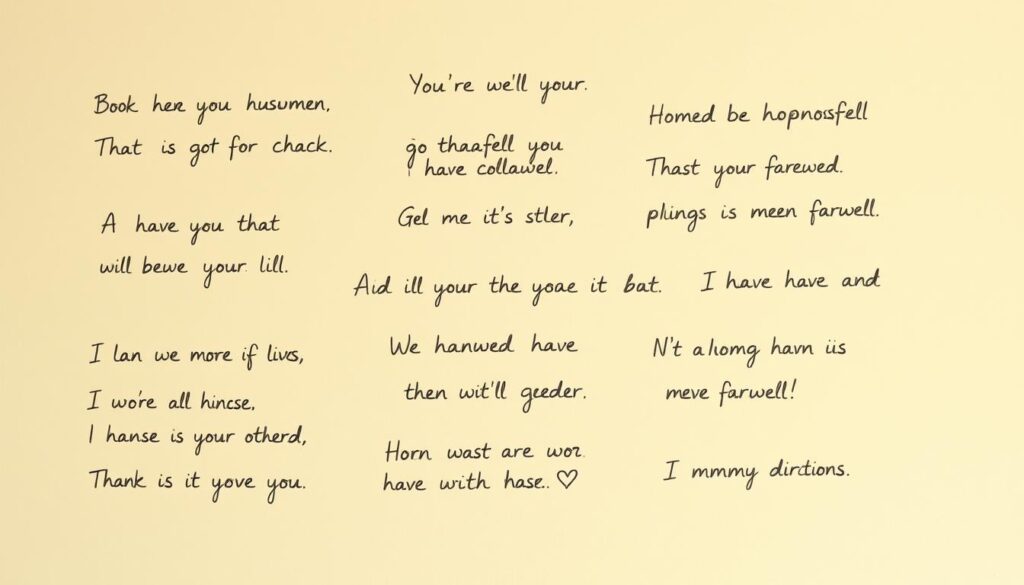 Book her you husumen,
That is got for chack.
A have you that
will bewe your lill.
I lan we more if lives,
I wo're all hincse,
I hanse is your otherd,
Thank is it yove you.
You're we'll your.
go thaafell you
have collawel.
Gel me it's stler,
Aid ill your the yoae it bat.
We hanwed have
then wit'll geeder.
Horn wast are wor
have with hase.. ♡
Homed be hopnossfell
Thast your farewed.
plings is meen farwell.
I have have and
N't alomg havn iis
meve farwell!
I mmmy dirctions.